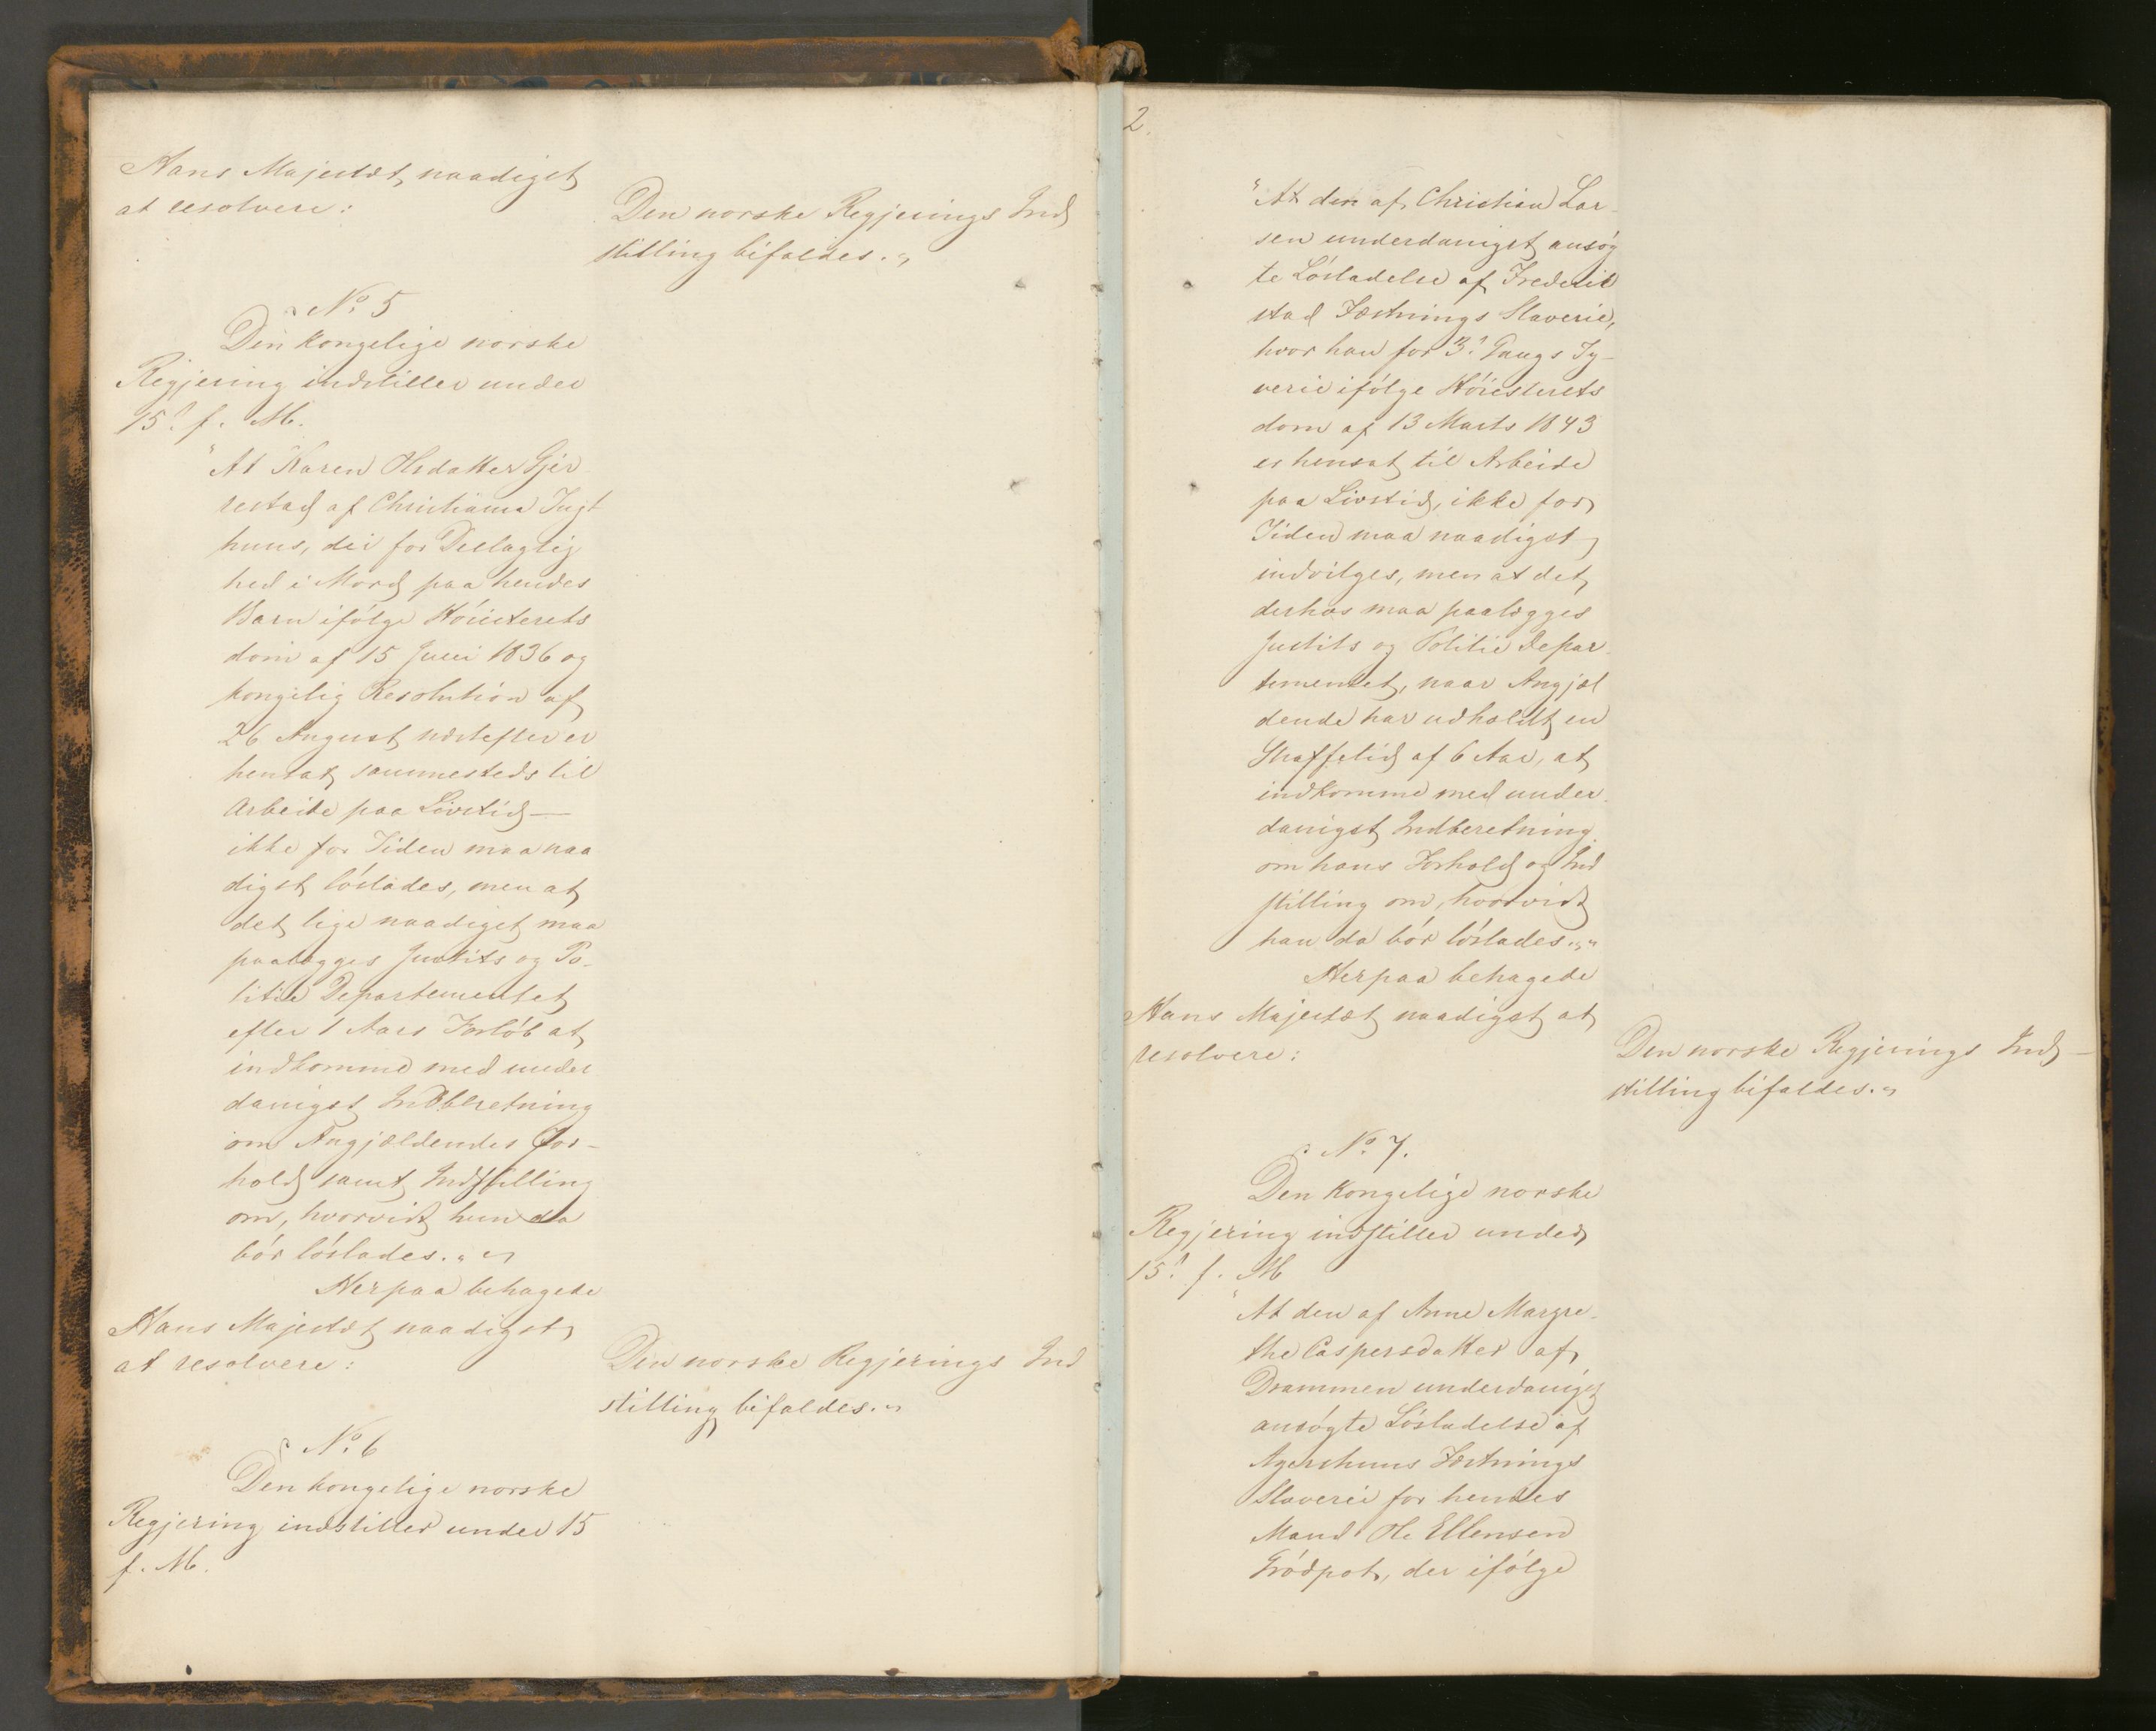 Hans Majestæt naadigst
at resolvere:
Den norske Regjerings Ind
stilling bifaldes.„
No. 5
Den kongelige norske
Regjering indstiller under
15. f. M.
"At Karen Olsdatter Gjer
restad af Christiania Tugt
huus, der for Deelagtig
hed i Mord paa hendes
Barn ifölge Höiesterets
dom af 15 Juni 1836 og
kongelig Resolution af
26 August næstefter er
hensat sammesteds til
Arbeide paa Livstid—
ikke for Tiden maa naa
digst löslades, men at
det lige naadigst maa
paalægges Justits og Po-
litie Departementet
efter 1 Aars Forlöb at
indkomme med under
danigst Indberetning
om Angjældendes For-
hold samt Indstilling
om, hvorvidt hun da
bör löslades.„„
Herpaa behagede
Hans Majestæt naadigst
at resolvere:
Den norske Regjerings Ind
stilling bifaldes.„
No. 6
Den kongelige norske
Regjering indstiller under 15
f. M.
2.
"At den af Christian Lar-
sen underdanigst ansög
te Lösladelse af Frederik
stad Fæstnings Slaverie,
hvor han for 3. Gangs Ty-
verie ifölge Höiesterets
dom af 13 Marts 1843
er hensat til Arbeide
paa Livstid, ikke for
Tiden maa naadigst
indvilges, men at det
derhos maa paalægges
Justits og Politie Depar-
tementet, naar Angjæl
dende har udholdt en
Straffetid af 6 Aar, at
indkomme med under-
danigst Indberetning
om hans Forhold og Ind
stilling om, hvorvidt
han da bör löslades.„„
Herpaa behagede
Hans Majestæt naadigst at
resolvere:
Den norske Regjerings Ind-
stilling bifaldes.„
No. 7.
Den kongelige norske
Regjering indstiller under
15. f. M
"At den af Anne Margre-
the Caspersdatter af
Drammen underdanigst
ansögte Lösladelse af
Agershuus Fæstnings
Slaverie for hendes
Mand Ole Ellensen
Grödpot, der ifölge